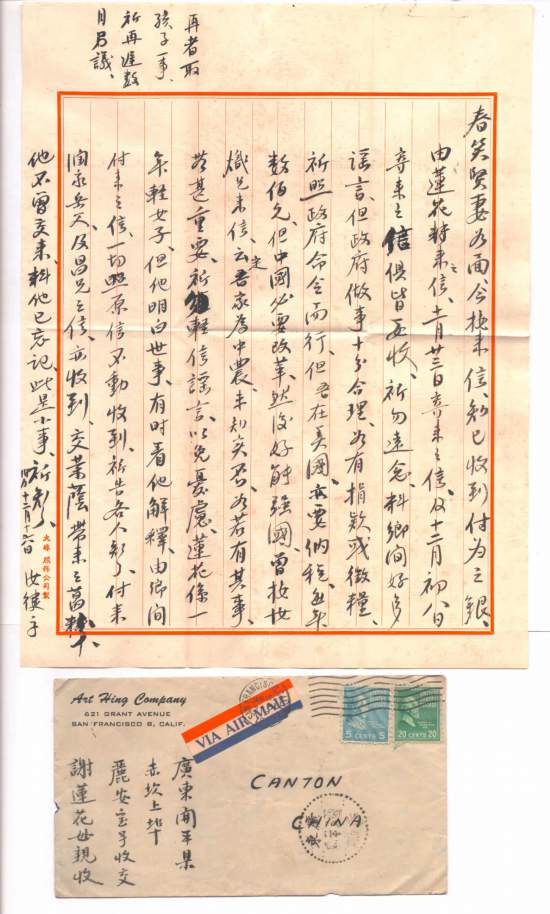 再者取
孩子一事、
祈再進數
月另議、
春笑賢妻如面今接來信、知已收到付為之銀、
由蓮花轉來之信、十二月廿三日寄來之信、及十二月初八日
寄來之信俱皆妥收、祈勿遠念、料鄉間好多
謠言、但政府做事十分合理、如有捐欵或徵糧、
祈照政府命令而行、但吾在美國亦要納稅、每年
數佰元、但中國必要改革、然後好能強國、曾接
兄來信、云吾家定為中農、未知笑否、如若有其事、
甚重要、祈輕信謠言、以免憂慮、蓮花係一
年輕女子、但他明白世事、有時看他解釋、由鄉間
付來之信、一切照原信不動收到、祈告各人知了、付來
潤泉岳丈、及昌兄之信、亦收到、交業蔭帶來之葛
他不曾交來、料他已忘記、此是小事、祈知、
十二月十六日
大埠 照務公司製
Art Hing Company
621 GRANT AVENUE
SAN FRANCISCO 8, CALIF.
VIA AIR MAIL
SAN FRANCISCO
5 CENTS 5
20 CENTS 20
CANTON
CHINA
廣東開平縣
赤坎上埠
麗安宝号收交
謝蓮花女親收